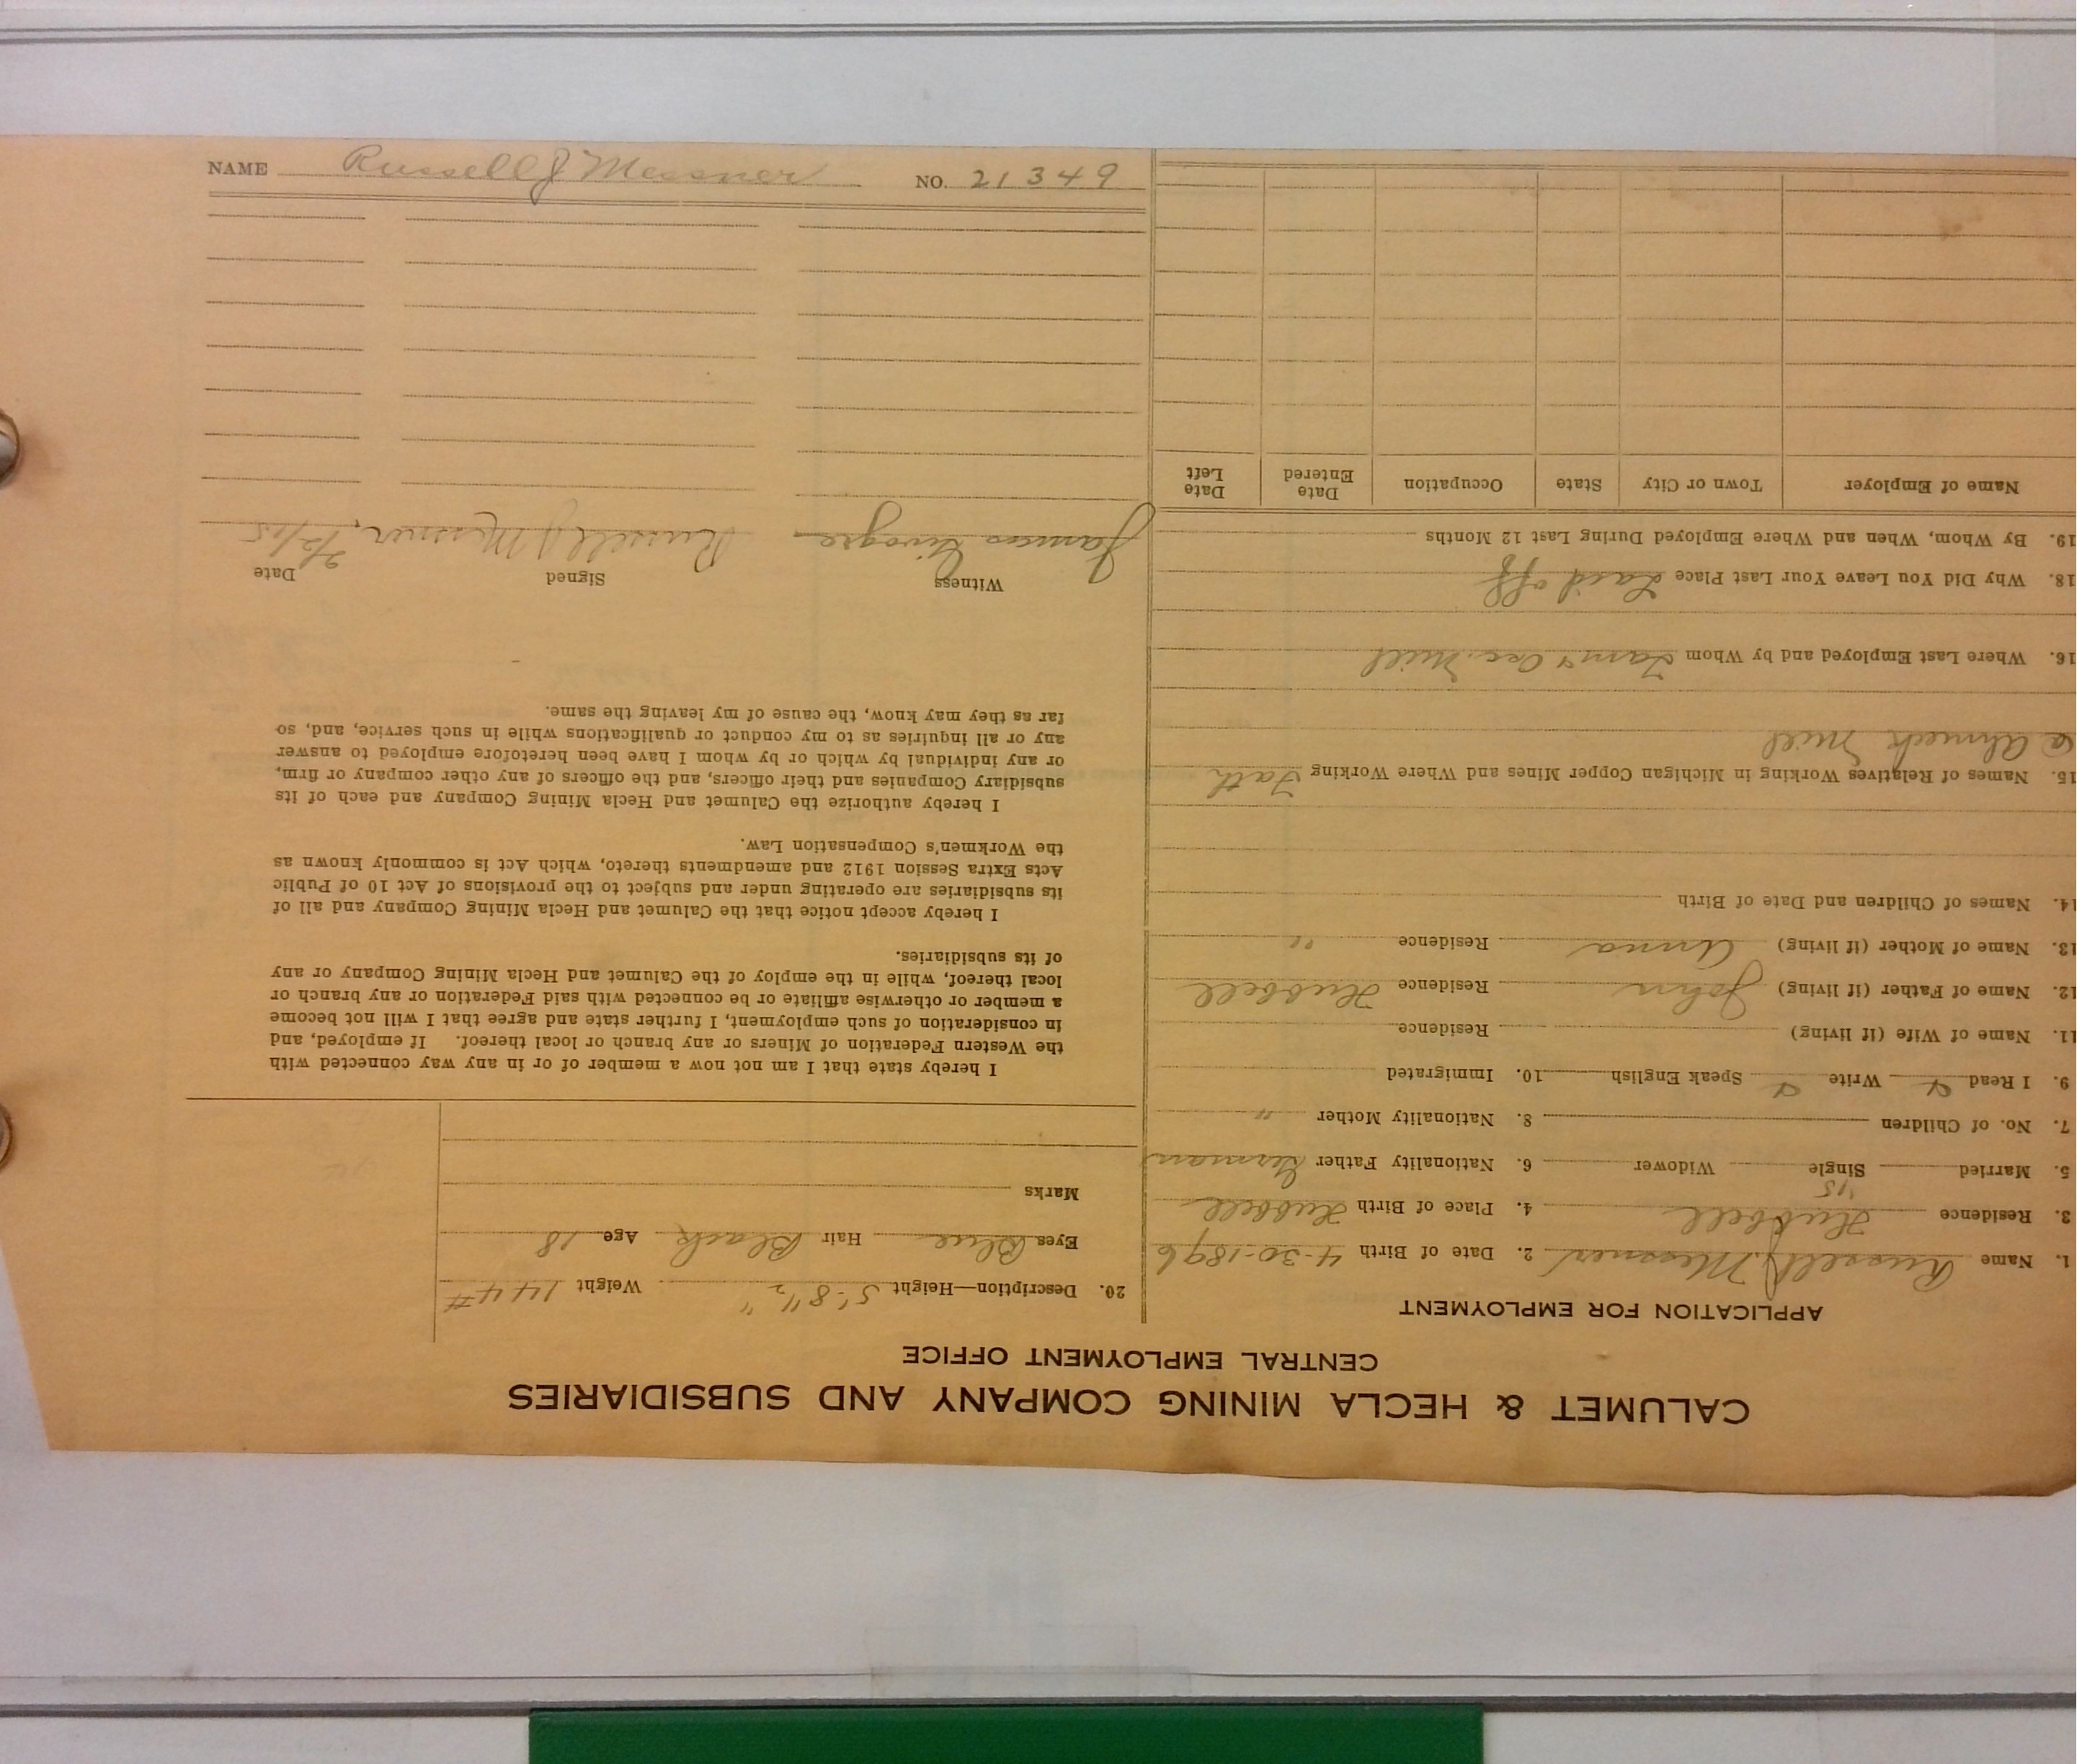 CALUMET & HECLA MINING COMPANY AND SUBSIDIARIES
CENTRAL EMPLOYMENT OFFICE
APPLICATION FOR EMPLOYMENT
1. Name Russell J Messner 2. Date of Birth 4-30-1896
3. Residence Hubbell 4. Place of Birth Hubbell
5. Married Single Widower 6. Nationality Father German
7. No. of Children 8. Nationality Mother "
9. I Read Write Speak English 10. Immigrated
11. Name of Wife (if living) Residence
12. Name of Father (if living) John Residence Hubbell
13. Name of Mother (if living) Anna Residence "
14. Names of Children and Date of Birth
15. Names of Relatives Working in Michigan Copper Mines and Where Working Fath
Ahmeek Mill
16. Where Last Employed and by Whom Tam & Osc. Mill
18. Why Did You Leave Your Last Place Laid off
19. By Whom, When and Where Employed During Last 12 Months
Name of Employer Town or City State Occupation Date Entered Date Left
20. Description—Height 5'-8 1/2" Weight 144#
Eyes Blue Hair Black Age 18
Marks
I hereby state that I am not now a member of or in any way connected with
the Western Federation of Miners or any branch or local thereof. If employed, and
in consideration of such employment, I further state and agree that I will not become
a member or otherwise affiliate or be connected with said Federation or any branch or
local thereof, while in the employ of the Calumet and Hecla Mining Company or any
of its subsidiaries.
I hereby accept notice that the Calumet and Hecla Mining Company and all of
its subsidiaries are operating under and subject to the provisions of Act 10 of Public
Acts Extra Session 1912 and amendments thereto, which Act is commonly known as
the Workmen's Compensation Law.
I hereby authorize the Calumet and Hecla Mining Company and each of its
subsidiary Companies and their officers, and the officers of any other company or firm,
or any individual by which or by whom I have been heretofore employed to answer
any or all inquiries as to my conduct or qualifications while in such service, and, so
far as they may know, the cause of my leaving the same.
Witness Signed Date
James Russell J Messner, 2/2/15
NAME Russell J Messner NO. 21349